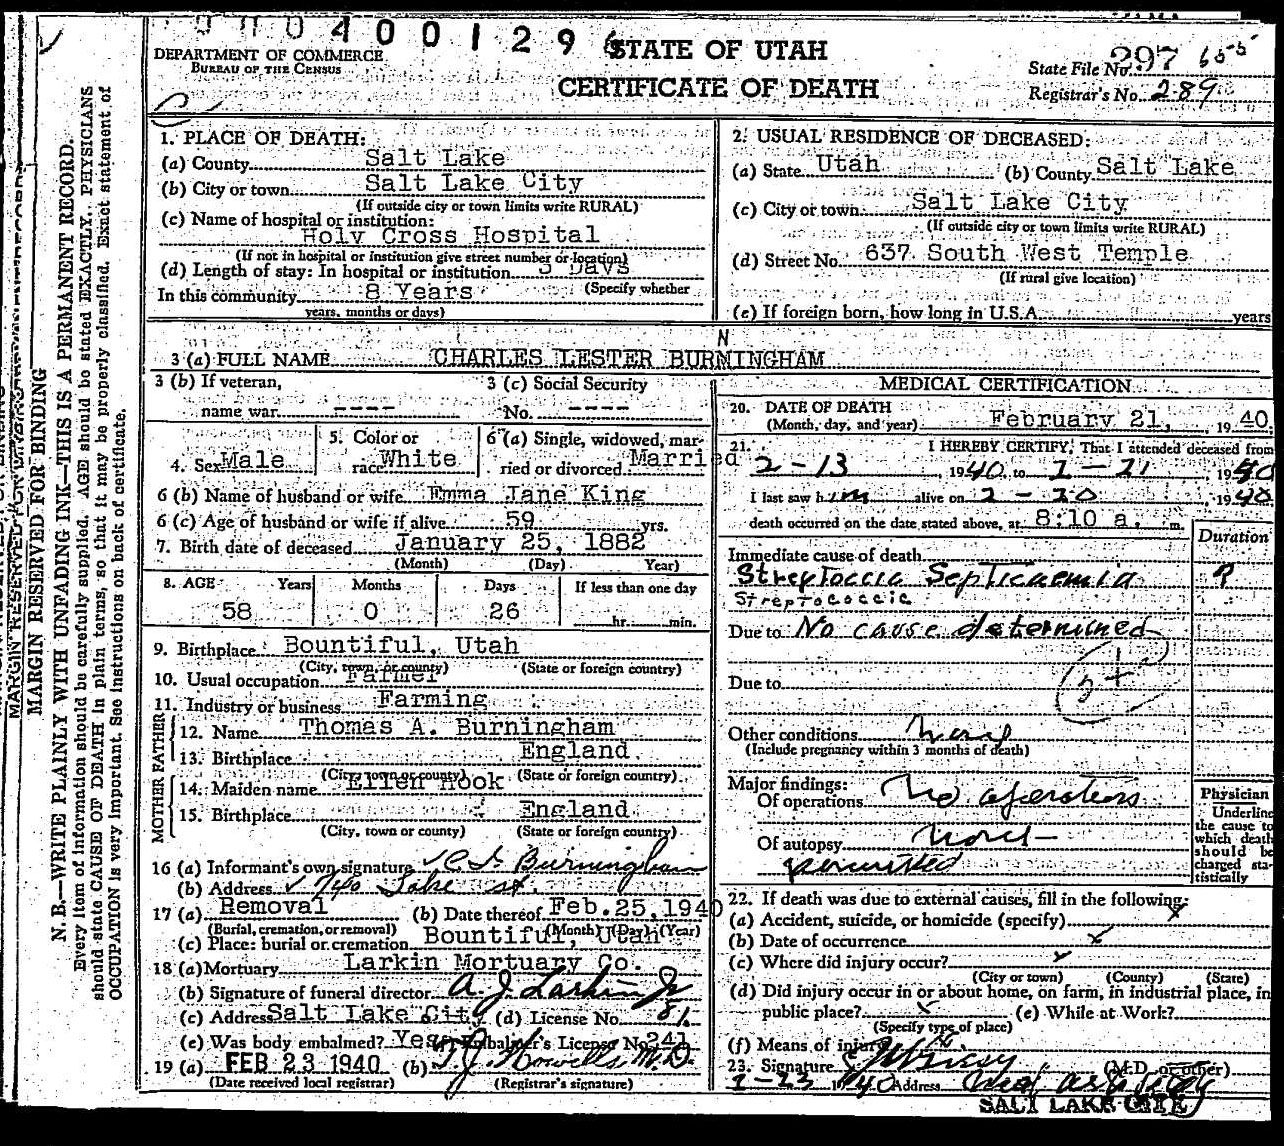 4001296
DEPARTMENT OF COMMERCE
BUREAU OF THE CENSUS
STATE OF UTAH
CERTIFICATE OF DEATH
State File No. 297 655
Registrar's No. 289
MARGIN RESERVED FOR BINDING
N. B.—WRITE PLAINLY WITH UNFADING INK—THIS IS A PERMANENT RECORD.
Every item of information should be carefully supplied. AGE should be stated EXACTLY. PHYSICIANS
should state CAUSE OF DEATH in plain terms, so that it may be properly classified. Exact statement of
OCCUPATION is very important. See instructions on back of certificate.
1. PLACE OF DEATH:
(a) County Salt Lake
(b) City or town Salt Lake City
(If outside city or town limits write RURAL)
(c) Name of hospital or institution:
Holy Cross Hospital
(If not in hospital or institution give street number or location)
(d) Length of stay: In hospital or institution 3 Days
(Specify whether
In this community 8 Years
years, months or days)
2. USUAL RESIDENCE OF DECEASED:
(a) State Utah (b) County Salt Lake
(c) City or town Salt Lake City
(If outside city or town limits write RURAL)
(d) Street No. 637 South West Temple
(If rural give location)
(e) If foreign born, how long in U.S.A. years
N
3 (a) FULL NAME CHARLES LESTER BURMINGHAM
3 (b) If veteran,
name war ----
3 (c) Social Security
No. ----
4. Sex Male
5. Color or
race White
6 (a) Single, widowed, mar-
ried or divorced Married
6 (b) Name of husband or wife Emma Jane King
6 (c) Age of husband or wife if alive 59 yrs.
7. Birth date of deceased January 25, 1882
(Month) (Day) Year)
8. AGE Years Months Days If less than one day
58 0 26 hr. min.
9. Birthplace Bountiful, Utah
(City, town, or county) (State or foreign country)
10. Usual occupation Farmer
11. Industry or business Farming
FATHER
12. Name Thomas A. Burningham
13. Birthplace England
(City, town or county) (State or foreign country)
MOTHER
14. Maiden name Ellen Hook
15. Birthplace England
(City, town or county) (State or foreign country)
16 (a) Informant's own signature Burningham
(b) Address 740 Lake st.
17 (a) Removal (b) Date thereof Feb.25,1940
(Burial, cremation, or removal) (Month) (Day) (Year)
(c) Place: burial or cremation Bountiful, Utah
18 (a) Mortuary Larkin Mortuary Co.
(b) Signature of funeral director A. J. Larkin Jr
(c) Address Salt Lake City (d) License No. 81
(e) Was body embalmed? Yes Embalmer's License No. 241
19 (a) FEB 23 1940 (b) T. J. Howells M.D.
(Date received local registrar) (Registrar's signature)
MEDICAL CERTIFICATION
20. DATE OF DEATH
(Month, day, and year) February 21, 1940.
21. I HEREBY CERTIFY, That I attended deceased from
2-13, 1940, to 2-21, 1940
I last saw him alive on 2-20, 1940.
death occurred on the date stated above, at 8:10 a. m.
Duration
Immediate cause of death
Streptoccic Septicaemia ?
Streptococcic
Due to No cause determined
Due to
Other conditions None
(Include pregnancy within 3 months of death)
Major findings:
Of operations No operations
Of autopsy None
permitted
Physician
Underline
the cause to
which death
should be
charged sta-
tistically
22. If death was due to external causes, fill in the following:
(a) Accident, suicide, or homicide (specify)
(b) Date of occurrence
(c) Where did injury occur?
(City or town) (County) (State)
(d) Did injury occur in or about home, on farm, in industrial place, in
public place? (e) While at Work?
(Specify type of place)
(f) Means of injury
23. Signature (M.D. or other)
2-23 1940 Address Med Arts Bldg
SALT LAKE CITY